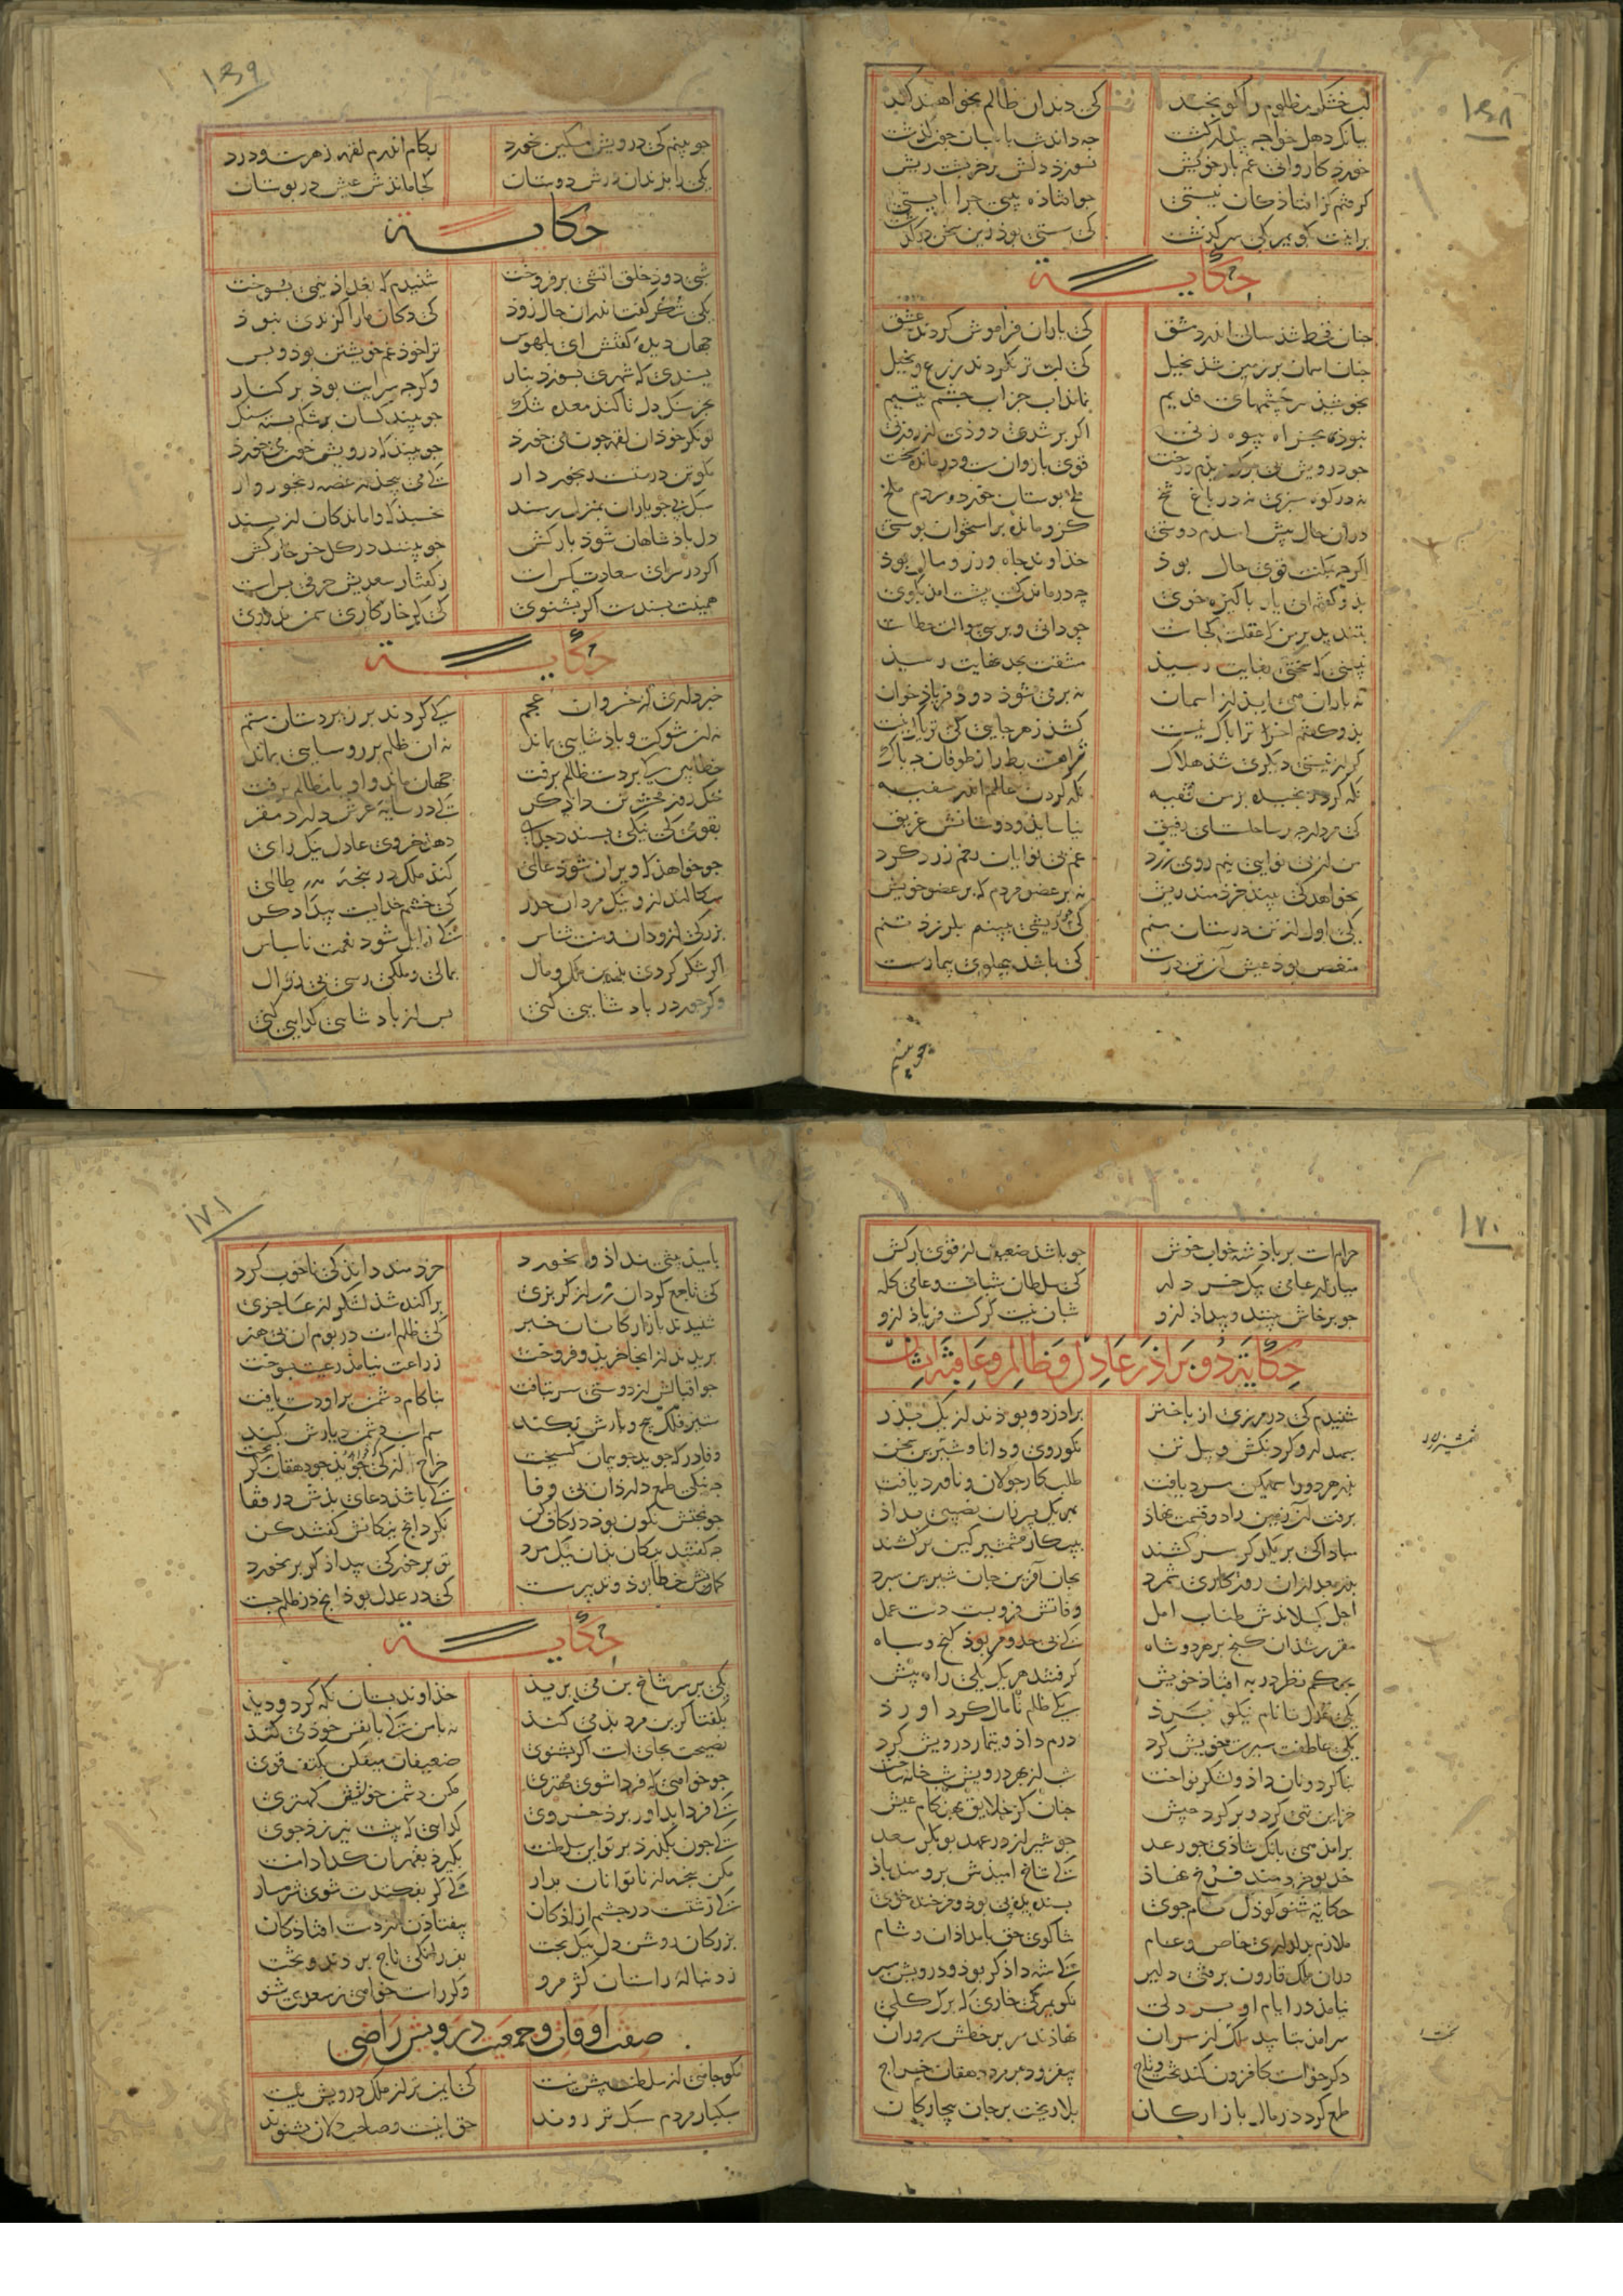 ۱۶۸
لب خشک مظلوم را کو بخند کی دندان ظالم بخواهند کند
ببانک دهل خواجه بیدار کشت چه داند شب پاسبان چون کذشت
خورد کاروانی غم بار خویش نسوزد دلش بر خر پشت ریش
کرفتم کز افتادکان نیستی چو افتاده بینی چرا ایستی
برانت بکویم یکی سرکذشت کی سستی بود زین سخن درکذشت
حکایة
چنان قحط شد سالی اندر دمشق کی یاران فراموش کردند عشق
چنان اسمان بر زمین شد بخیل کی لب تر نکردند زرع و نخیل
بخوشید سرچشمهای قدیم نماند اب جز اب چشم یتیم
نبودی بجز اه بیوه زنی اکر بر شدی دودی از روزنی
چو درویش بی برک دیدم درخت قوی بازوان سست و درمانده سخت
نه در کوه سبزی نه در باغ شخ ملخ بوستان خورد و مردم ملخ
دران حال پیش امدم دوستی کزو مانده بر استخوان پوستی
اکرچه بمکنت قوی حال بوذ خذاوند جاه و زر و مال بوذ
بذو کفتم ای یار پاکیزه خوی چه درماندکی پیشت امد بکوی
بتندید بر من کی عقلت کجاست چو دانی و پرسی سوالت خطاست
نبینی کی سختی بغایت رسیذ مشقت بحد نهایت رسیذ
نه باران همی ایذ از اسمان نه بر می شوذ دود فریاذ خوان
بذو کفتم اخر ترا باک نیست کشد زهر جایی کی تریاک نیست
کر از نیستی دیکری شذ هلاک ترا هست بط را ز طوفان چه باک
نکه کرد رنجیده در من فقیه نکه کردن عالم اندر سفیه
کی مرد ارچه بر ساحلست ای رفیق نیاساید و دوستانش غریق
من از بی نوایی نیم روی زرد غم بی نوایان رخم زرد کرد
نخواهد کی بیند خردمند ریش نه بر عضو مردم نه بر عضو خویش
یکی اول از تن درستان منم کی چون ریشی ببینم بلرزد تنم
منغص بود عیش آن تن درست کی باشد بپهلوی بیمار سست
۱۶۹
چو بینم کی درویش مسکین نخورد بکام اندرم لقمه زهرست و درد
یکی را بزندان درش دوستان کجا ماندش عیش در بوستان
حکایة
شبی دود خلق اتشی بر فروخت شنیدم که بغداذ نیمی بسوخت
یکی شکر کفت اندران حال زوذ کی دکان ما را کزندی نبوذ
جهان دیده کفتش ای بلهوس ترا خوذ غم خویشتن بوذ و بس
پسندی که شهری بسوزد بنار وکرچه سرایت بوذ بر کنار
بجز سنک دل ناکند معده تنک چو بیند کسان بر شکم بسته سنک
توانکر خود ان لقمه چون می خورد چو بیند که درویش خون می خورد
مکو تن درستست رنجوردار کی می پیچد از غصه رنجور وار
سبک پی چو یاران بمنزل رسند نخسبد که واماندکان از پسند
دل پاذشاهان شوذ بارکش چو بینند در کل خر خارکش
اکر در سرای سعادت کس است ز کفتار سعدیش حرفی بس است
همینت بسندست اکر بشنوی کی کر خار کاری سمن ندروی
حکایة
خبر داری از خسروان عجم کی کردند بر زیردستان ستم
نه ان شوکت و پاذشایی بماند نه ان ظلم بر روستایی بماند
خطا بین کی بر دست ظالم برفت جهان ماند و او با مظالم برفت
خنک روز محشر تن داذکر کی در سایه عرش دارد مقر
بقومی کی نیکی پسندد خذای دهد خسروی عادل نیک رای
چو خواهذ که ویران شوذ عالمی کند ملک در پنجه ظالمی
سکالند ازو نیک مردان حذر کی خشم خدایست بیدادکر
بزرکی ازو دان و منت شناس کی زایل شود نعمت ناسپاس
اکر شکر کردی برین ملک و مال بمالی و ملکی رسی بی زوال
وکر جور در پادشایی کنی پس از پادشایی کدایی کنی
۱۷۰
حرامست بر پاذشه خواب خوش چو باشذ ضعیف از قوی بارکش
میازار عامی بیک خردله کی سلطان شبانست و عامی کله
چو پرخاش بینند و بیداذ ازو شبان نیست کرکست فریاذ ازو
حکایة دو برادر عادل و ظالم و عاقبة ایشان
شنیدم کی در مرزی از باختر برادر دو بوذند از یک پذر
سپهدار و کردنکش و پیل تن نکو روی و دانا و شمشیر زن
پدر هر دو را سهمکین مرد یافت طلبکار جولان و ناورد یافت
برفت آن زمین را دو قسمت نهاذ بهر یک پسر زان نصیبی بداذ
مباذا کی بر یکدکر سر کشند بپیکار شمشیر کین بر کشند
پدر بعد ازان روزکاری شمرد بجان آفرین جان شیرین سپرد
اجل بکسلاندش طناب امل وفاتش فرو بست دست عمل
مقرر شذ ان مملکت بر دو شاه کی بی حد و مر بوذ کنج و سپاه
بحکم نظر در به افتاذ خویش کرفتند هر یک یکی راه پیش
یکی عدل تا نام نیکو برذ یکی ظلم تا مال کرد اورذ
یکی عاطفت سیرت خویش کرد درم داذ و تیمار درویش کرد
بنا کرد و نان داذ و لشکر نواخت شب از بهر درویش شب خانه ساخت
خزاین تهی کرد و پر کرد جیش چنان کز خلایق بهنکام عیش
برامد همی بانک شادی چو رعد چو شیراز در عهد بوبکر سعد
خدیو خردمند فرخ نهاذ کی شاخ امیذش برومند باذ
حکایة شنو کوذک نامجوی پسندیده پی بوذ و فرخنده خوی
ملازم بدلداری خاص و عام ثناکوی حق بامدادان و شام
دران ملک قارون برفتی دلیر کی شه داذکر بوذ و درویش سیر
نیامذ در ایام او بر دلی نکویم کی خاری که برک کلی
سرامد بتایید ملک از سران نهادند سر بر خطش سروران
دکر خواست کافزون کند تخت و تاج بیفزود بر مرد دهقان خراج
طمع کرد در مال بازارکان بلا ریخت بر جان بیچارکان
۱۷۱
بامید بیشی نداذ و نخورد خردمند داند کی ناخوب کرد
کی تا جمع کرد ان زر از کربزی پراکنده شذ لشکر از عاجزی
شنیدند بازارکانان خبر کی ظلم است در بوم ان بی هنر
بریدند از انجا خرید و فروخت زراعت نیامذ رعیت بسوخت
چو اقبالش از دوستی سر بتافت بناکام دشمن برو دست یافت
ستیز فلک بیخ و بارش بکند سم اسب دشمن دیارش بکند
وفا در که جوید چو پیمان کسیخت خراج از کی جوید چو دهقان کریخت
چه نیکی طمع دارد ان بی وفا کی باشد دعای بدش در قفا
چو بختش نکون بوذ در کاف کن نکرد انچ نیکانش کفتند کن
چه کفتند نیکان بدان نیک مرد تو بر خور کی بیداذکر بر نخورد
کمانش خطا بوذ و تدبیر سست کی در عدل بوذ انچ در ظلم جست
حکایة
یکی بر سر شاخ بن می برید خذاوند بستان نکه کرد و دید
بکفتا کر این مرد بد می کند نه با من کی با نفس خود می کند
نصیحت بجایست اکر بشنوی ضعیفان میفکن بکتف قوی
چو خواهی که فردا شوی مهتری مکن دشمن خویشتن کهتری
کی فردا بداور برد خسروی کدایی که پیشت نیرزد جوی
کی چون بکذرد بر تو این سلطنت بکیرد بقهر ان کدا دامنت
مکن پنجه از ناتوانان بدار کی کر بفکنندت شوی شرمسار
کی زشتست در چشم ازاذکان بیفتادن از دست افتاذکان
بزرکان روشن دل نیک بخت بفرزانکی تاج بردند و تخت
ز دنباله راستان کژ مرو وکر راست خواهی ز سعدی شنو
صفت اوقات و جمعیت درویش راضی
مکو جاهی از سلطنت بیش نیست کی ایمن تر از ملک درویش نیست
سبکبار مردم سبک تر روند حق اینست و صاحب دلان بشنوند